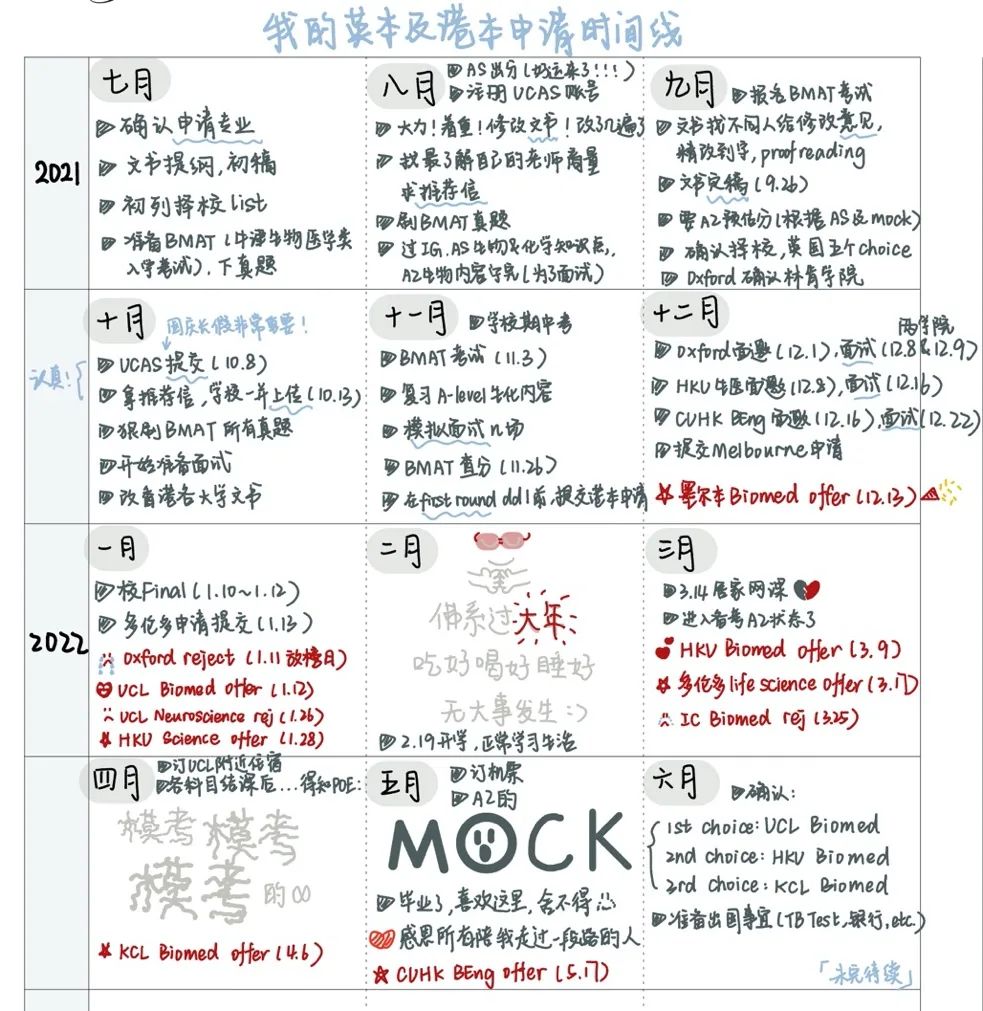 我的英本及港本申请时间线
2021
七月
确认申请专业
文书提纲,初稿
初列择校list
准备BMAT(牛津生物医学类
入学考试),下真题
八月
AS出分(好运来了!!!)
注册UCAS账号
大力!着重!修改文书!改了几遍了
找最了解自己的老师商量
求推荐信
刷BMAT真题
过IG,AS生物及化学知识点,
A2生物内容学完(为了面试)
九月
报名BMAT考试
文书找不同人给修改意见,
精改到字,proofreading
文书定稿(9.26)
要A2预估分(根据AS及mock)
确认择校,英国五个choice
Oxford确认林肯学院
认真!
十月
国庆长假非常重要!
UCAS提交(10.8)
拿推荐信,学校一并上传(10.13)
狠刷BMAT所有真题
开始准备面试
改香港各大学文书
十一月
学校期中考
BMAT考试(11.3)
复习A-level生化内容
模拟面试n场
BMAT查分(11.26)
在first round ddl前,提交港本申请
十二月
两学院
Oxford面邀(12.1),面试(12.8&12.9)
HKU生医面邀(12.8),面试(12.16)
CUHK BEng面邀(12.16),面试(12.22)
提交Melbourne申请
墨尔本Biomed offer(12.13)
2022
一月
校Final(1.10~1.12)
多伦多申请提交(1.13)
Oxford reject(1.11放榜日)
UCL Biomed offer(1.12)
UCL Neuroscience rej(1.26)
HKU Science offer(1.28)
二月
佛系过大年
吃好喝好睡好
无大事发生:)
2.19开学,正常学习生活
三月
3.14居家网课
进入备考A2状态了
HKU Biomed offer(3.9)
多伦多life science offer(3.17)
IC Biomed rej(3.25)
四月
订UCL附近住宿
各科目结课后...得知POE:
模考模考
模考的∞
KCL Biomed offer(4.6)
五月
订机票
A2的
MOCK
毕业了,喜欢这里,舍不得
感恩所有陪我走过一段路的人
CUHK BEng offer(5.17)
六月
确认:
1st choice:UCL Biomed
2nd choice:HKU Biomed
2rd choice:KCL Biomed
准备出国事宜(TB Test,银行,etc.)
「未完待续」